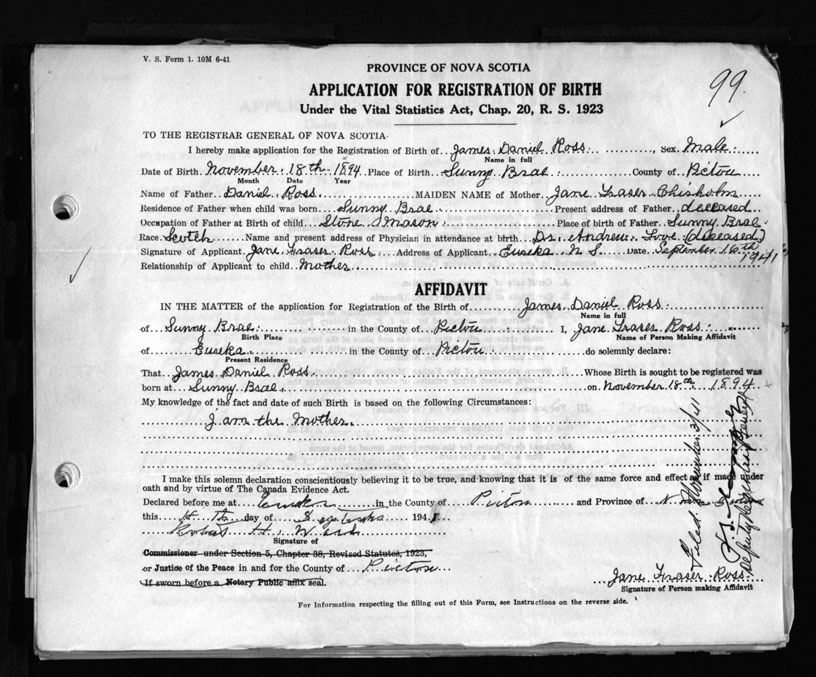 V. S. Form 1. 10M 6-41
99
PROVINCE OF NOVA SCOTIA
APPLICATION FOR REGISTRATION OF BIRTH
Under the Vital Statistics Act, Chap. 20, R. S. 1923
TO THE REGISTRAR GENERAL OF NOVA SCOTIA
I hereby make application for the Registration of Birth of James Daniel Ross, Sex Male
Name in full
Date of Birth November 18th 1894 Place of Birth Sunny Brae County of Pictou
Month Date Year
Name of Father Daniel Ross MAIDEN NAME of Mother Jane Fraser Chisholm
Residence of Father when child was born Sunny Brae Present address of Father deceased
Occupation of Father at Birth of child Stone Mason Place of birth of Father Sunny Brae
Race Scotch Name and present address of Physician in attendance at birth Dr. Andrew (deceased)
Signature of Applicant Jane Fraser Ross Address of Applicant Eureka N S. Date September 16th 1941
Relationship of Applicant to child Mother
AFFIDAVIT
IN THE MATTER of the application for Registration of the Birth of James Daniel Ross
Name in full
of Sunny Brae in the County of Pictou I, Jane Fraser Ross
Birth Place Name of Person Making Affidavit
of Eureka in the County of Pictou do solemnly declare:
Present Residence
That James Daniel Ross Whose Birth is sought to be registered was
born at Sunny Brae on November 18th 1894
My knowledge of the fact and date of such Birth is based on the following Circumstances:
I am the Mother.
I make this solemn declaration conscientiously believing it to be true, and knowing that it is of the same force and effect as if made under
oath and by virtue of The Canada Evidence Act.
Declared before me at Eureka in the County of Pictou and Province of Nova Scotia
this day of September 1941
H. Ward
Signature of
Commissioner under Section 5, Chapter 38, Revised Statutes, 1923,
or Justice of the Peace in and for the County of Pictou
If sworn before a Notary Public affix seal.
Jane Fraser Ross
Signature of Person making Affidavit
For Information respecting the filling out of this Form, see Instructions on the reverse side.
Filed. November 3/41
Deputy Registrar General